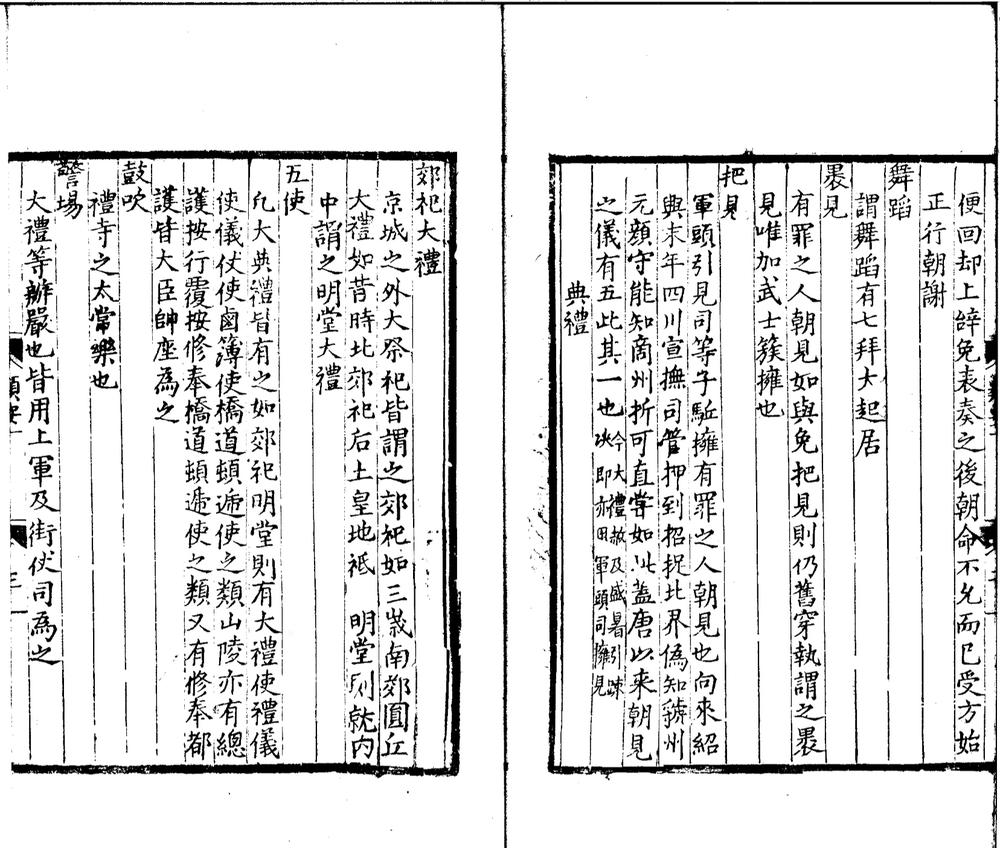 便回却上辭免表奏之後朝命不允而已受方始
正行朝謝
舞蹈
謂舞蹈有七拜大起居
㬥見
有罪之人朝見如與免把見則仍舊穿執謂之㬥
見唯加武士簇擁也
把見
軍頭引見司等子駈擁有罪之人朝見也向來紹
興末年四川宣撫司管押到招捉北界偽知號州
元顏守能知商州折可直嘗如此蓋唐以來朝見
之儀有五此其一也今大禮赦及盛暑引疎
決即亦用軍頭司擁見
典禮
郊祀大禮
京城之外大祭祀皆謂之郊祀如三歲南郊圓丘
大禮如昔時北郊祀后土皇地祇 明堂則就内
中謂之明堂大禮
五使
凢大典禮皆有之如郊祀明堂則有大禮使禮儀
使儀仗使鹵簿使橋道頓遞使之類山陵亦有總
護按行覆按修奉橋道頓遞使之類又有修奉都
護皆大臣帥座為之
鼓吹
禮寺之太常樂也
警塲
大禮等辦嚴也皆用上軍及街仗司為之
類要
三